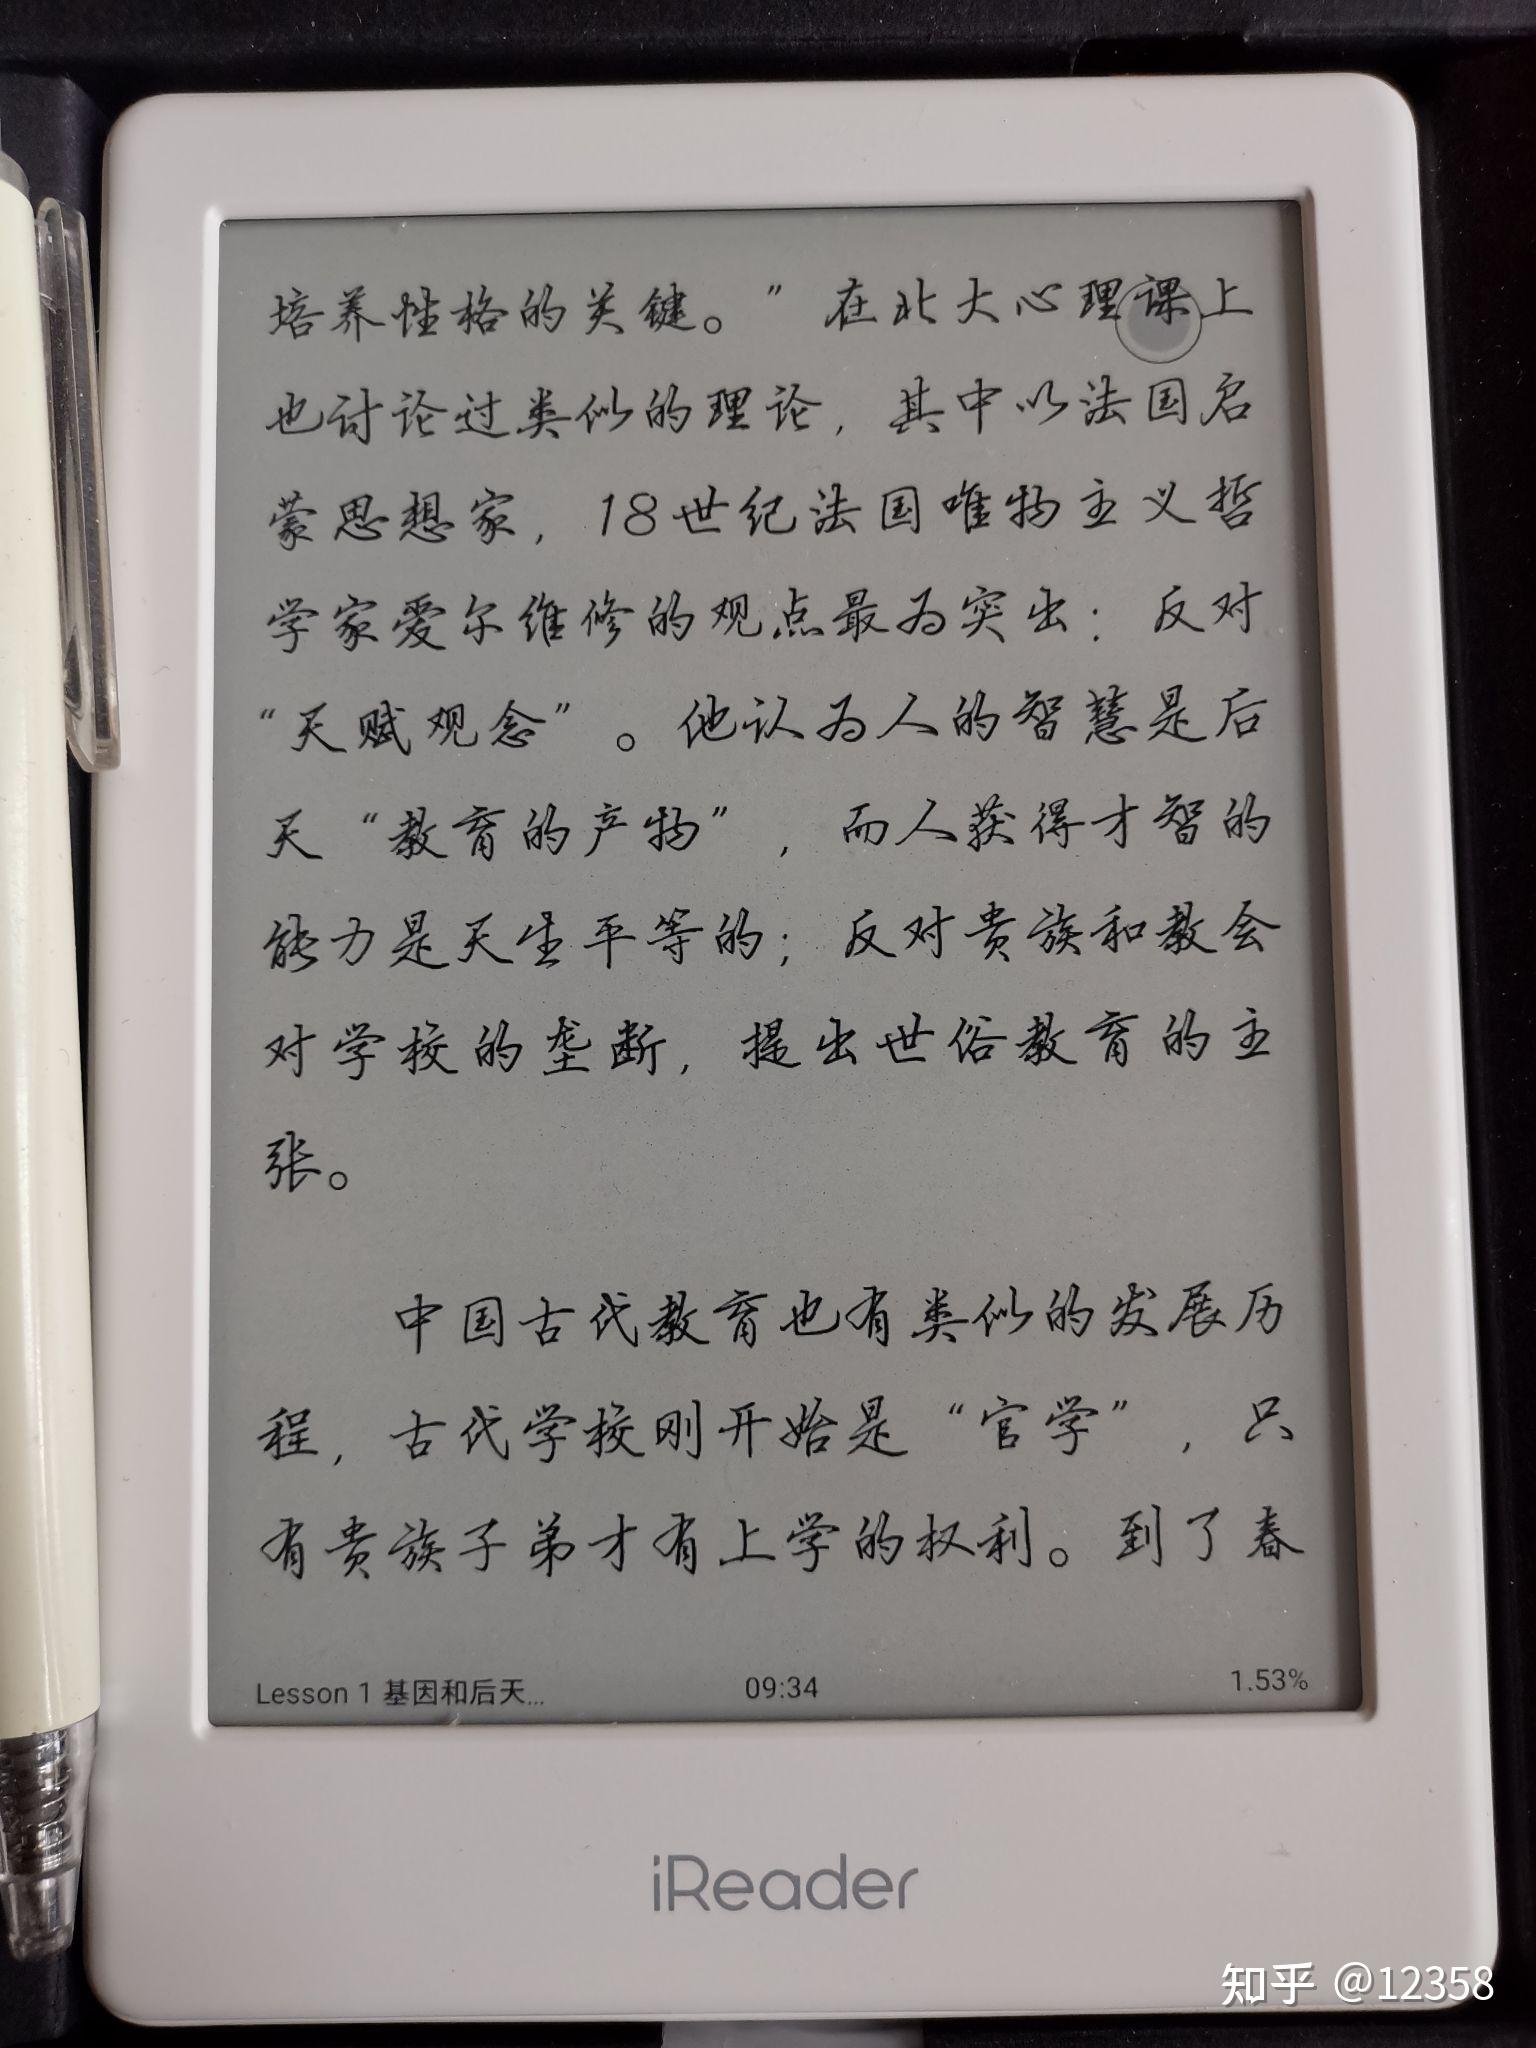 培养性格的关键。”在北大心理课上
也讨论过类似的理论，其中以法国启
蒙思想家，18世纪法国唯物主义哲
学家爱尔维修的观点最为突出：反对
“天赋观念”。他认为人的智慧是后
天“教育的产物”，而人获得才智的
能力是天生平等的；反对贵族和教会
对学校的垄断，提出世俗教育的主
张。
中国古代教育也有类似的发展历
程，古代学校刚开始是“官学”，只
有贵族子弟才有上学的权利。到了春
Lesson 1 基因和后天... 09:34 1.53%
iReader
知乎 @12358